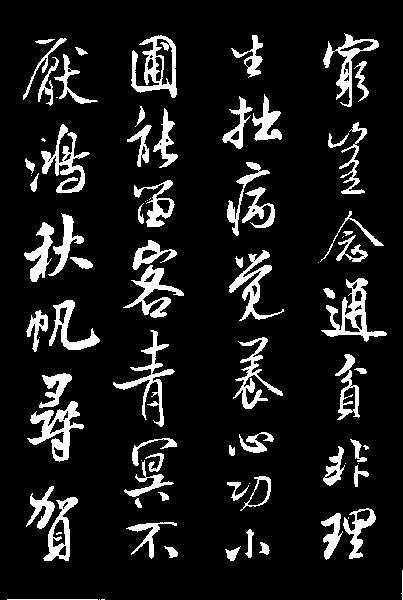 窮豈念通貧非理
生拙病覺養心功小
圃能留客青冥不
厭鴻秋帆尋賀